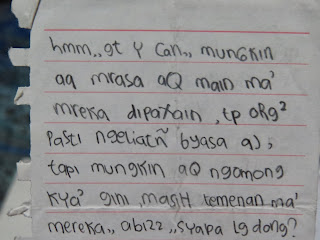 hmm,, gt y can,, mungkin
aq mrasa aQ main ma'
mreka dipoxain, tp oRg²
pasti ngeliatñ byasa aj,
tapi mungkin aQ ngomong
kya² gini, masih temenan ma'
mereka,, abizz ,, syapa lg dong?